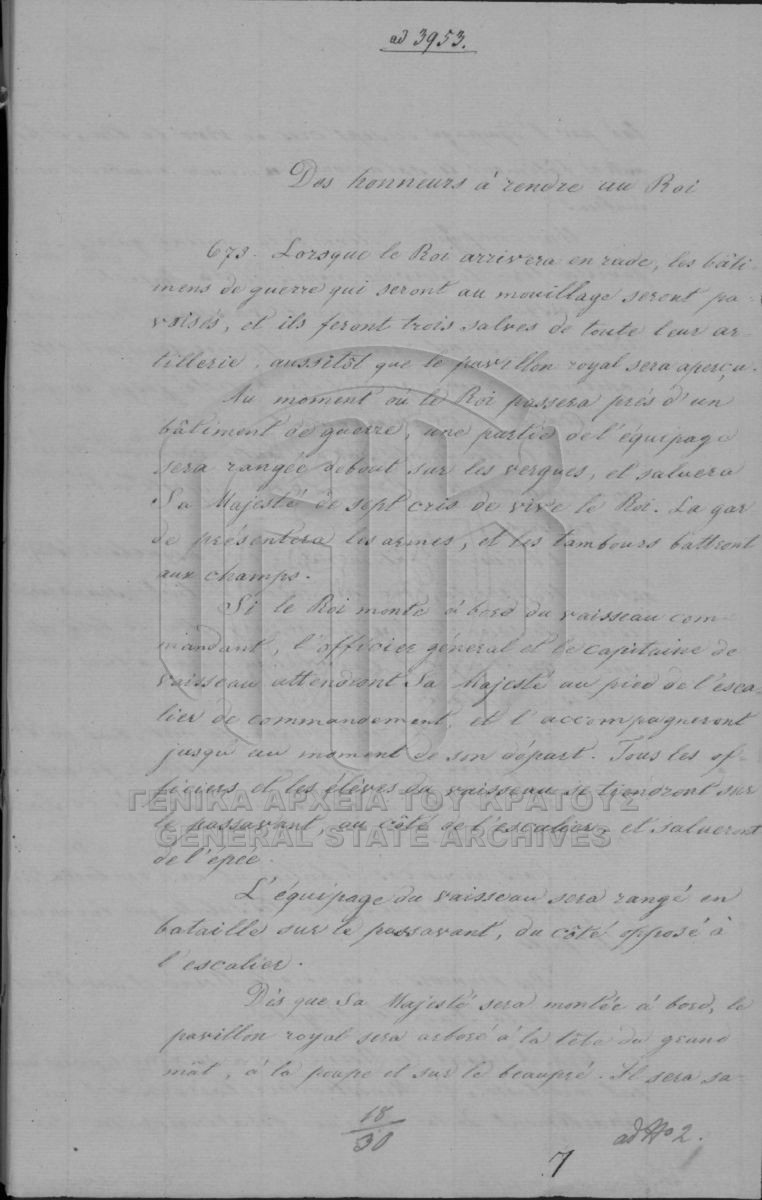 ad 3953.
Des honneurs à rendre au Roi
673. Lorsque le Roi arrivera en rade, les bâti-
mens de guerre qui seront au mouillage seront pa-
voisés, et ils feront trois salves de toute leur ar-
tillerie, aussitôt que le pavillon royal sera aperçu.
Au moment où le Roi passera près d'un
bâtiment de guerre, une partie de l'équipage
sera rangée debout sur les vergues, et saluera
Sa Majesté de sept cris de vive le Roi. La gar-
de présentera les armes, et les tambours battront
aux champs.
Si le Roi monte à bord du vaisseau com-
mandant, l'officier général et le capitaine de
vaisseau attendront Sa Majesté au pied de l'esca-
lier de commandement, et l'accompagneront
jusqu'au moment de son départ. Tous les of-
ficiers et les élèves du vaisseau se tiendront sur
ΓΕΝΙΚΑ ΑΡΧΕΙΑ ΤΟΥ ΚΡΑΤΟΥΣ
le passavant, au côté de l'escalier, et salueront
GENERAL STATE ARCHIVES
de l'épée.
L'équipage du vaisseau sera rangé en
bataille sur le passavant, du côté opposé à
l'escalier.
Dès que Sa Majesté sera montée à bord, le
pavillon royal sera arboré à la tête du grand
mât, à la poupe et sur le beaupré. Il sera sa-
18
30
ad No 2.
7